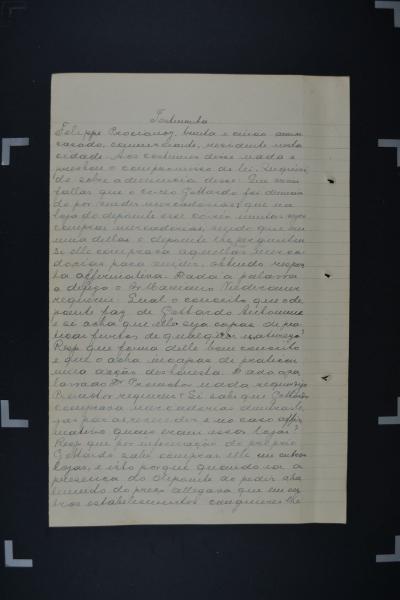 Testemunha
Felippe Procianoy, trinta e cinco annos
casado, commerciante, residente nesta
cidade. Aos costumes disse nada e
prestou o compromisso de lei. Inquiri
do sobre a denuncia disse: Que ouvio
fallar que o cerco Gottardo foi
do por vender mercadorias; que na
loja do depoente esse cerco muitas vezes
comprou mercadorias, sendo que em
uma dellas o depoente lhe perguntou
se elle comprava aquellas merca
dorias para vender, obtendo respos
ta affirmativa. Dada a palavra
a defeza o Dr
requereu: Qual o conceito que o de
poente faz de Gottardo
e si acha que elle seja capaz de pra
ticar furtos de qualquer natureza?
Resp. que forma delle bom conceito
e que o acha incapaz de praticar
uma acção deshonesta. Dado a pa
lavra ao Dr Promotor nada requereu
Promotor requereu: Si sabe que Gottardo
comprava mercadorias
jas para revender e no caso affir
mativo quaes eram essas lojas?
Resp. que por informação do proprio
Gottardo sabe comprar elle em outras
lojas, e isto porque quando ia a
presença do depoente ao pedir aba
timento do preço allegava que em ou
tros estabelecimentos conseguira lhe